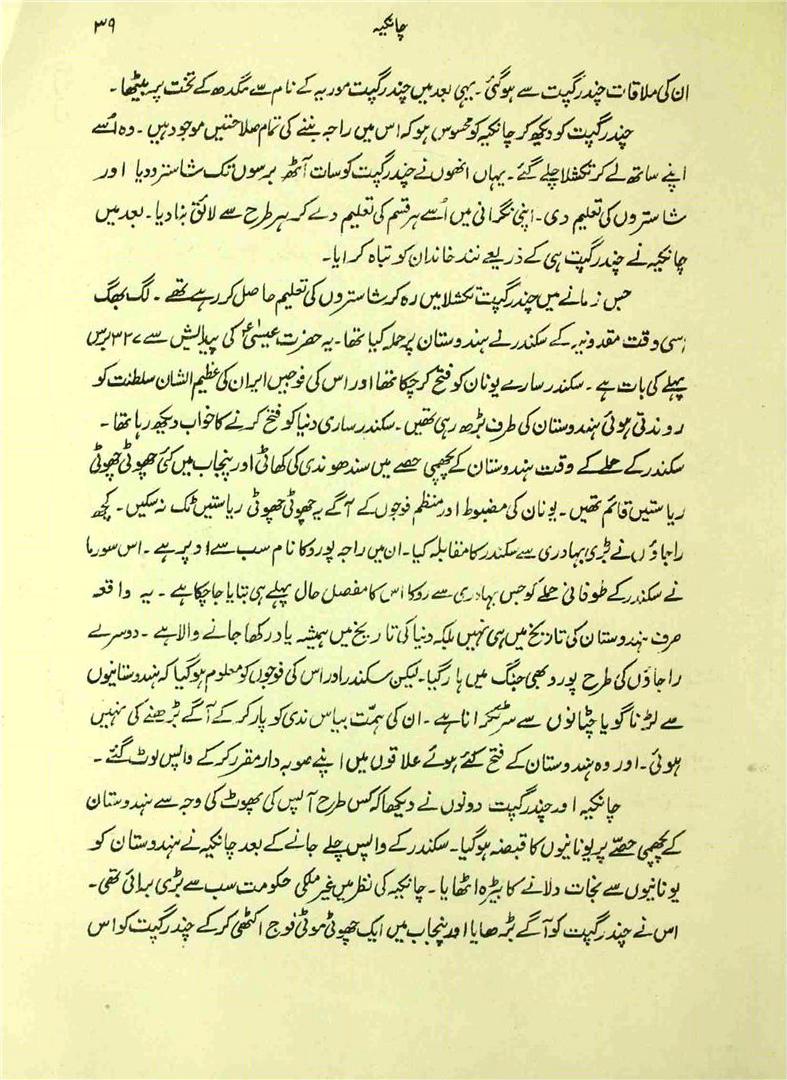 چانکیہ ۳۹
ان کی ملاقات چندرگپت سے ہوگئی۔ یہی بعد میں چندرگپت موریہ کے نام سے مگدھ کے تخت پر بیٹھا۔
چندرگپت کو دیکھ کر چانکیہ کو محسوس ہو کہ اس میں راجہ بننے کی تمام صلاحتیں موجود ہیں۔ وہ اُسے
اپنے ساتھ لے کر تکشلا چلے گئے۔ یہاں انھوں نے چندرگپت کو سات آٹھ برسوں تک شاسترودیا اور
شاستروں کی تعلیم دی۔ اپنی نگرانی میں اُسے ہر قسم کی تعلیم دے کر ہر طرح سے لائق بنا دیا۔ بعد میں
چانکیہ نے چندرگپت ہی کے ذریعے نند خاندان کو تباہ کرایا۔
جس زمانے میں چندرگپت تکشلا میں رہ کر شاستروں کی تعلیم حاصل کر رہے تھے۔ لگ بھگ
اسی وقت مقدونیہ کے سکندر نے ہندوستان پر حملہ کیا تھا۔ یہ حضرت عیسیٰؑ کی پیدائش سے ۳۲۷ برس
پہلے کی بات ہے۔ سکندر سارے یونان کو فتح کر چکا تھا اور اس کی فوجیں ایران کی عظیم الشان سلطنت کو
روندتی ہوئی ہندوستان کی طرف بڑھ رہی تھیں۔ سکندر ساری دنیا کو فتح کرنے کا خواب دیکھ رہا تھا۔
سکندر کے حملے کے وقت ہندوستان کے پچھمی حصے میں سندھو ندی کی گھاٹی اور پنجاب میں کئی چھوٹی چھوٹی
ریاستیں قائم تھیں۔ یونان کی مضبوط اور منظم فوجوں کے آگے یہ چھوٹی چھوٹی ریاستیں ٹک نہ سکیں۔ کچھ
راجاؤں نے بڑی بہادری سے سکندر کا مقابلہ کیا۔ ان میں راجہ پورو کا نام سب سے اوپر ہے۔ اس سورما
نے سکندر کے طوفانی حملے کو جس بہادری سے روکا اس کا مفصل حال پہلے ہی بتایا جا چکا ہے۔ یہ واقعہ
صرف ہندوستان کی تاریخ میں ہی نہیں بلکہ دنیا کی تاریخ میں ہمیشہ یاد رکھا جانے والا ہے۔ دوسرے
راجاؤں کی طرح پورو بھی جنگ میں ہار گیا۔ لیکن سکندر اور اس کی فوجوں کو معلوم ہوگیا کہ ہندوستانیوں
سے لڑنا گویا چٹانوں سے سر ٹکرانا ہے۔ ان کی ہمّت بیاس ندی کو پار کر کے آگے بڑھنے کی نہیں
ہوئی۔ اور وہ ہندوستان کے فتح کئے ہوئے علاقوں میں اپنے صوبہ دار مقرر کر کے واپس لوٹ گئے۔
چانکیہ اور چندرگپت دونوں نے دیکھا کہ کس طرح آپس کی پھوٹ کی وجہ سے ہندوستان
کے پچھمی حصّے پر یونانیوں کا قبضہ ہوگیا۔ سکندر کے واپس چلے جانے کے بعد چانکیہ نے ہندوستان کو
یونانیوں سے نجات دلانے کا بیڑہ اٹھایا۔ چانکیہ کی نظر میں غیر ملکی حکومت سب سے بڑی برائی تھی۔
اس نے چندرگپت کو آگے بڑھایا اور پنجاب میں ایک چھوٹی موٹی فوج اکٹھی کر کے چندرگپت کو اس